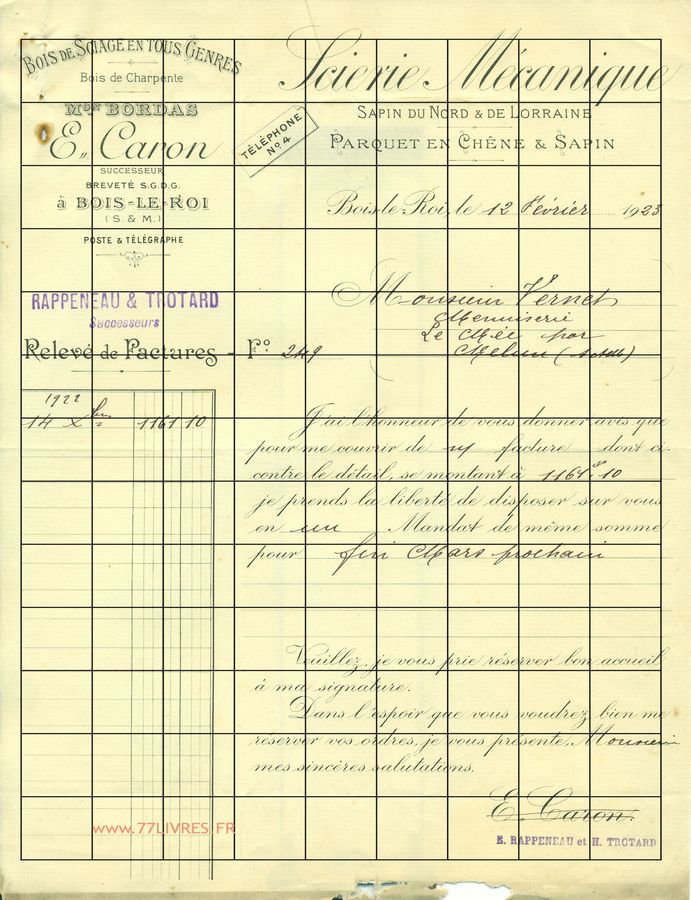 BOIS DE SCIAGE EN TOUS GENRES
Bois de Charpente
MON BORDAS
E. Caron
SUCCESSEUR
BREVETÉ S.G.D.G.
à BOIS-LE-ROI
(S. & M.)
POSTE & TÉLÉGRAPHE
TÉLÉPHONE
No 4
Scierie Mécanique
SAPIN DU NORD & DE LORRAINE
PARQUET EN CHÊNE & SAPIN
Bois-le-Roi, le 12 Février 1923
RAPPENEAU & TROTARD
Successeurs
Monsieur Vernet
Menuiserie
Le Mée par
Melun
Relevé de Factures - Fo. 249
1922
14 Xbre 1161 10
J'ai l'honneur de vous donner avis que
pour me couvrir de facture dont ci-
contre le détail, se montant à 1161 10
je prends la liberté de disposer sur vous
en un Mandat de même somme
pour fin Mars prochain
Veuillez, je vous prie réserver bon accueil
à ma signature.
Dans l'espoir que vous voudrez bien me
réserver vos ordres, je vous présente, Monsieur
mes sincères salutations.
E. Caron.
E. RAPPENEAU et H. TROTARD
www.77LIVRES.FR